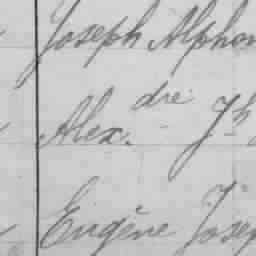 Joseph Alphon
Alex.dre Jh
Eugène Josep